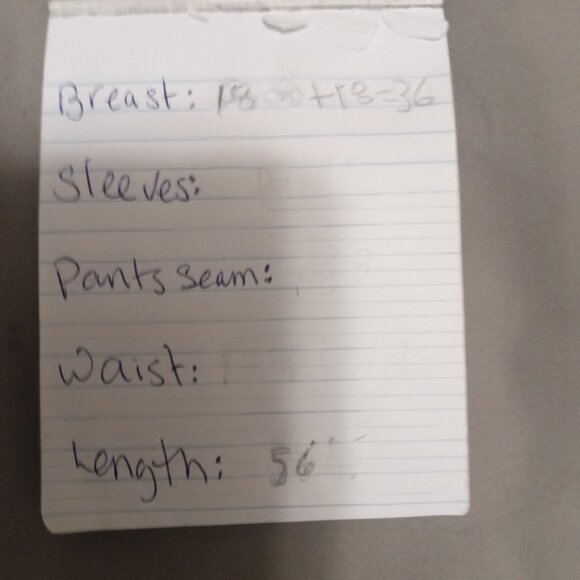 Breast: 18 +18=36
Sleeves:
Pants seam:
Waist:
Length: 56"